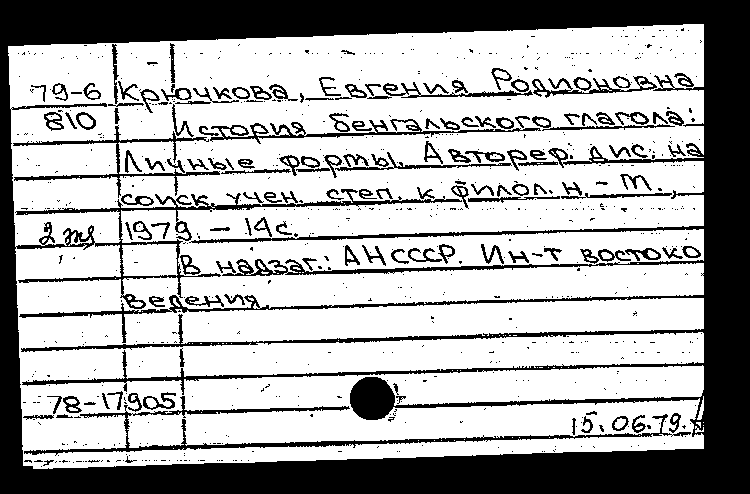 79-6 Крючкова, Евгения Родионовна
810 История бенгальского глагола:
Личные формы. Автореф. дис. на
соиск. учен. степ. к. филол. н. - М.,
2 экз 1979. - 14 с.
В надзаг.: АН СССР. Ин-т востоко
ведения.
78-17905
15.06.79.